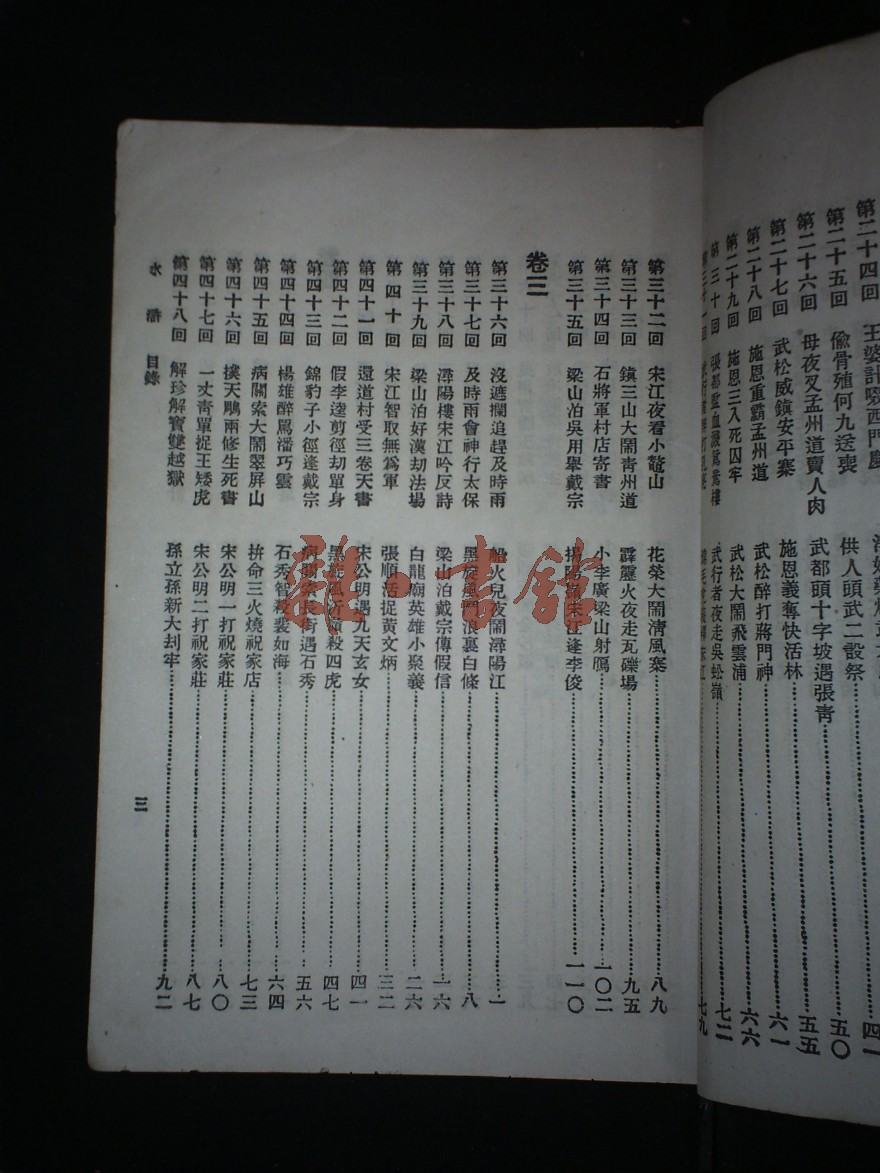 第二十四回 王婆計啜西門慶
第二十五回 偸骨殖何九送喪 供人頭武二設祭 五〇
第二十六回 母夜叉孟州道賣人肉 武都頭十字坡遇張青 五五
第二十七回 武松威鎭安平寨 施恩義奪快活林 六一
第二十八回 施恩重霸孟州道 武松醉打蔣門神 六六
第二十九回 施恩三入死囚牢 武松大鬧飛雲浦 七二
第三十回 張都監血濺鴛鴦樓 武行者夜走吳蚣嶺 七九
第三十二回 宋江夜看小鼇山 花榮大鬧淸風寨 八九
第三十三回 鎭三山大鬧靑州道 霹靂火夜走瓦礫場 九五
第三十四回 石將軍村店寄書 小李廣梁山射鴈 一〇二
第三十五回 梁山泊吳用舉戴宗 揭陽嶺宋江逢李俊 一一〇
卷三
第三十六回 沒遮攔追趕及時雨 船火兒夜鬧潯陽江 一
第三十七回 及時雨會神行太保 黑旋風鬥浪裏白條 八
第三十八回 潯陽樓宋江吟反詩 梁山泊戴宗傳假信 一六
第三十九回 梁山泊好漢劫法場 白龍廟英雄小聚義 二六
第四十回 宋江智取無爲軍 張順活捉黃文炳 三二
第四十一回 還道村受三卷天書 宋公明遇九天玄女 四一
第四十二回 假李逵剪徑劫單身 黑旋風沂嶺殺四虎 四七
第四十三回 錦豹子小徑逢戴宗 病關索長街遇石秀 五六
第四十四回 楊雄醉罵潘巧雲 石秀智殺裴如海 六四
第四十五回 病關索大鬧翠屏山 拚命三火燒祝家店 七三
第四十六回 撲天鵰兩修生死書 宋公明一打祝家莊 八〇
第四十七回 一丈靑單捉王矮虎 宋公明二打祝家莊 八七
第四十八回 解珍解寶雙越獄 孫立孫新大刦牢 九二
水滸 目錄
三